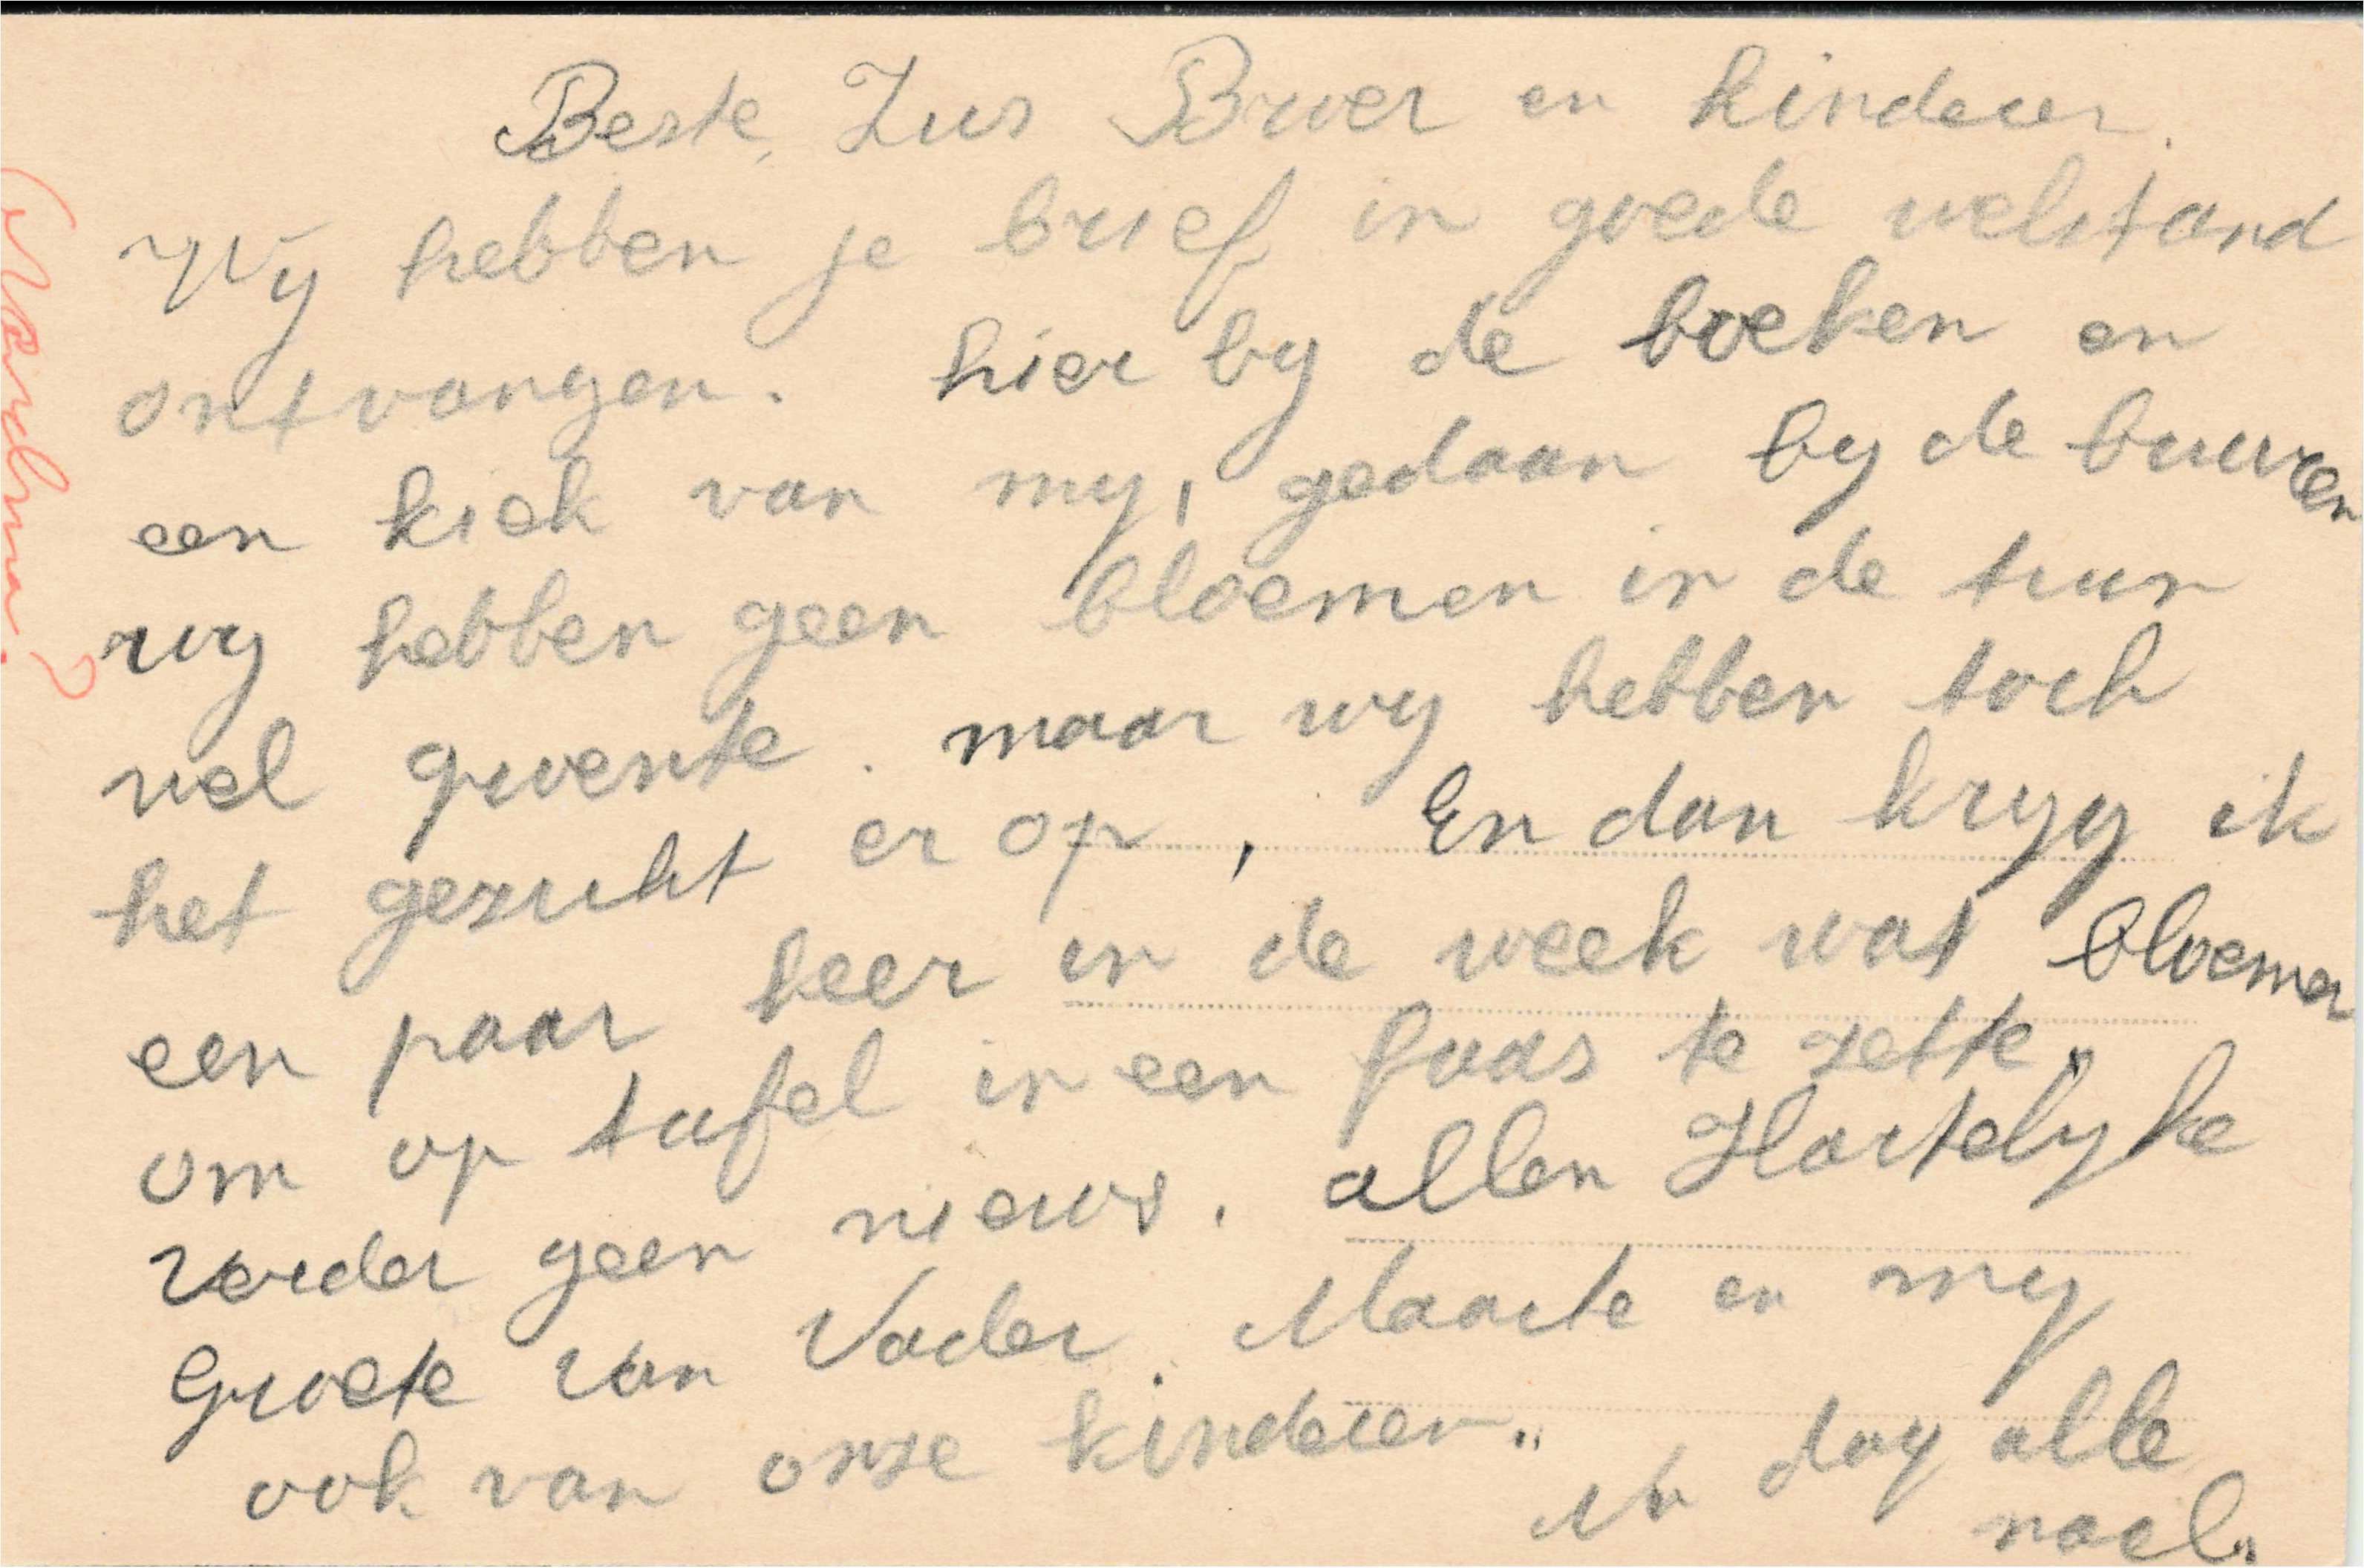 Beste, Zus Broer en kinderen.
Wy hebben je brief in goede welstand
ontvangen. hier by de boeken en
een kiek van my, gedaan by de buuren
wy hebben geen bloemen in de tuin
wel groente. maar wy hebben toch
het gezicht er op, En dan kryg ik
een paar keer in de week wat bloemen
om op tafel in een faas te zette.
Verder geen nieuws. allen Hartelyke
Groete van Vader. Maarte en my
ook van onze kinderen.
Nu dag alle